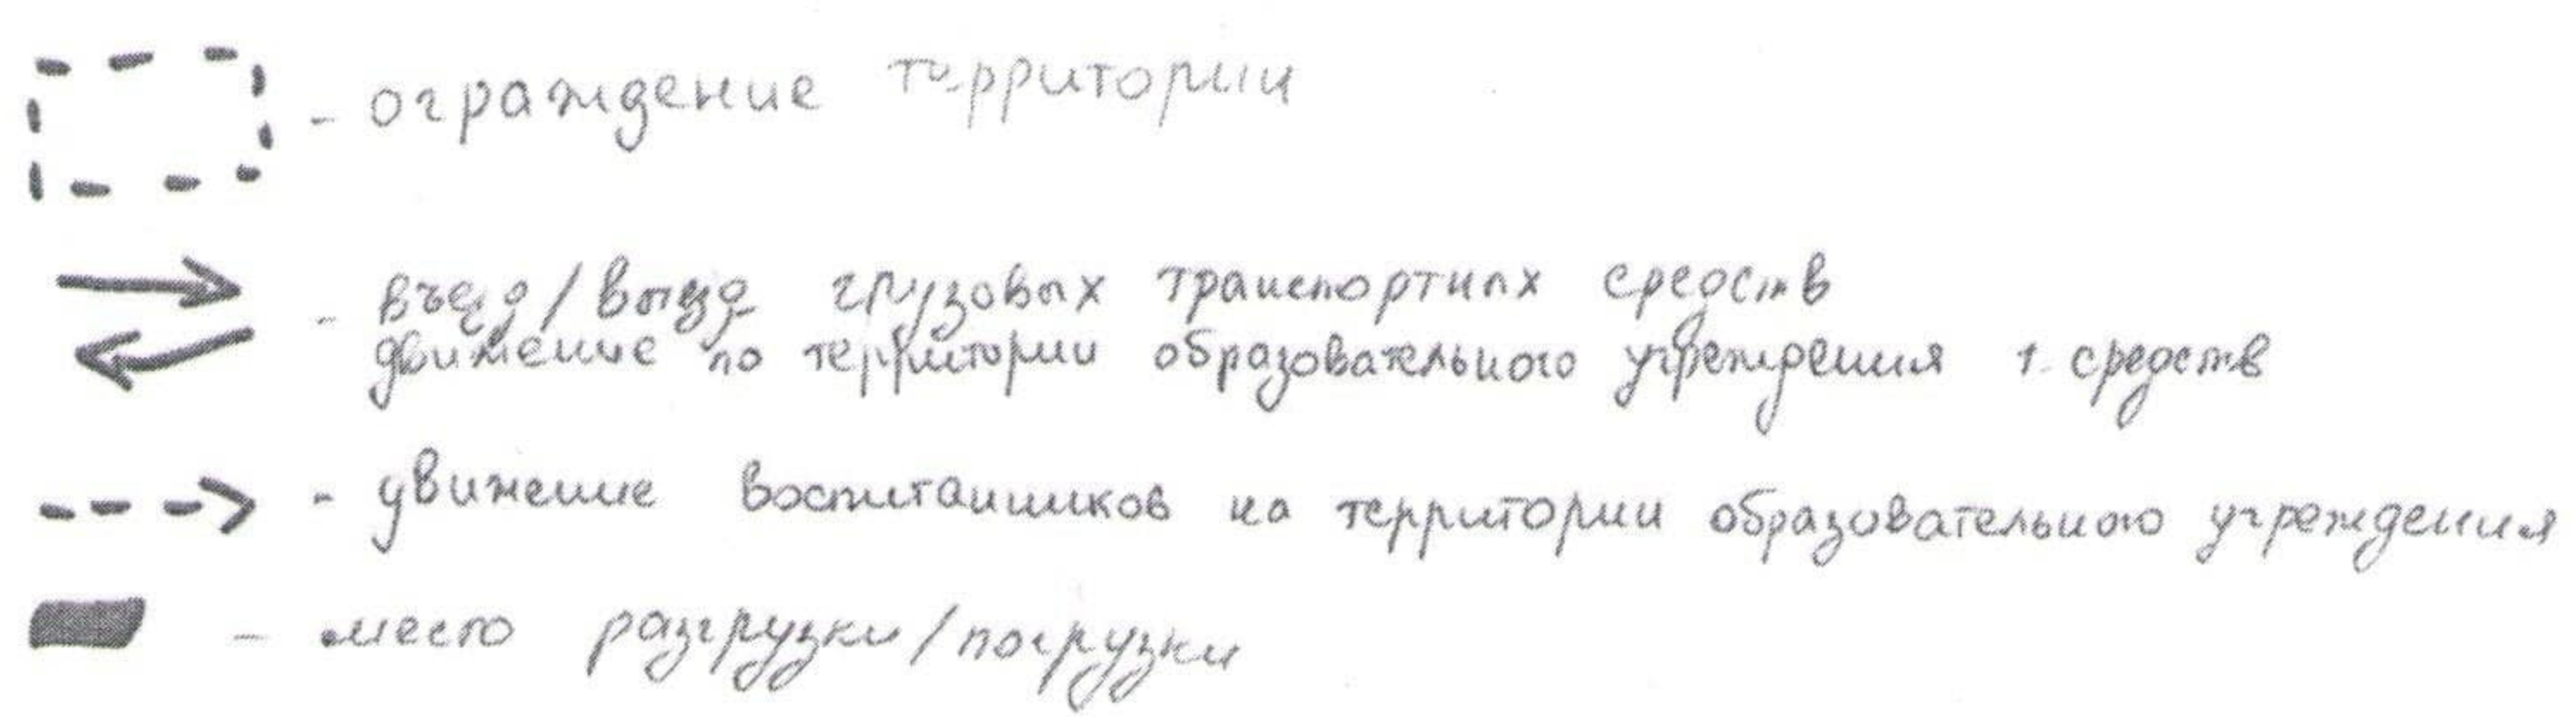 - ограждение территории
- въезд/выезд грузовых транспортных средств
движение по территории образовательного учреждения т. средств
- движение воспитанников на территории образовательного учреждения
- место разгрузки/погрузки